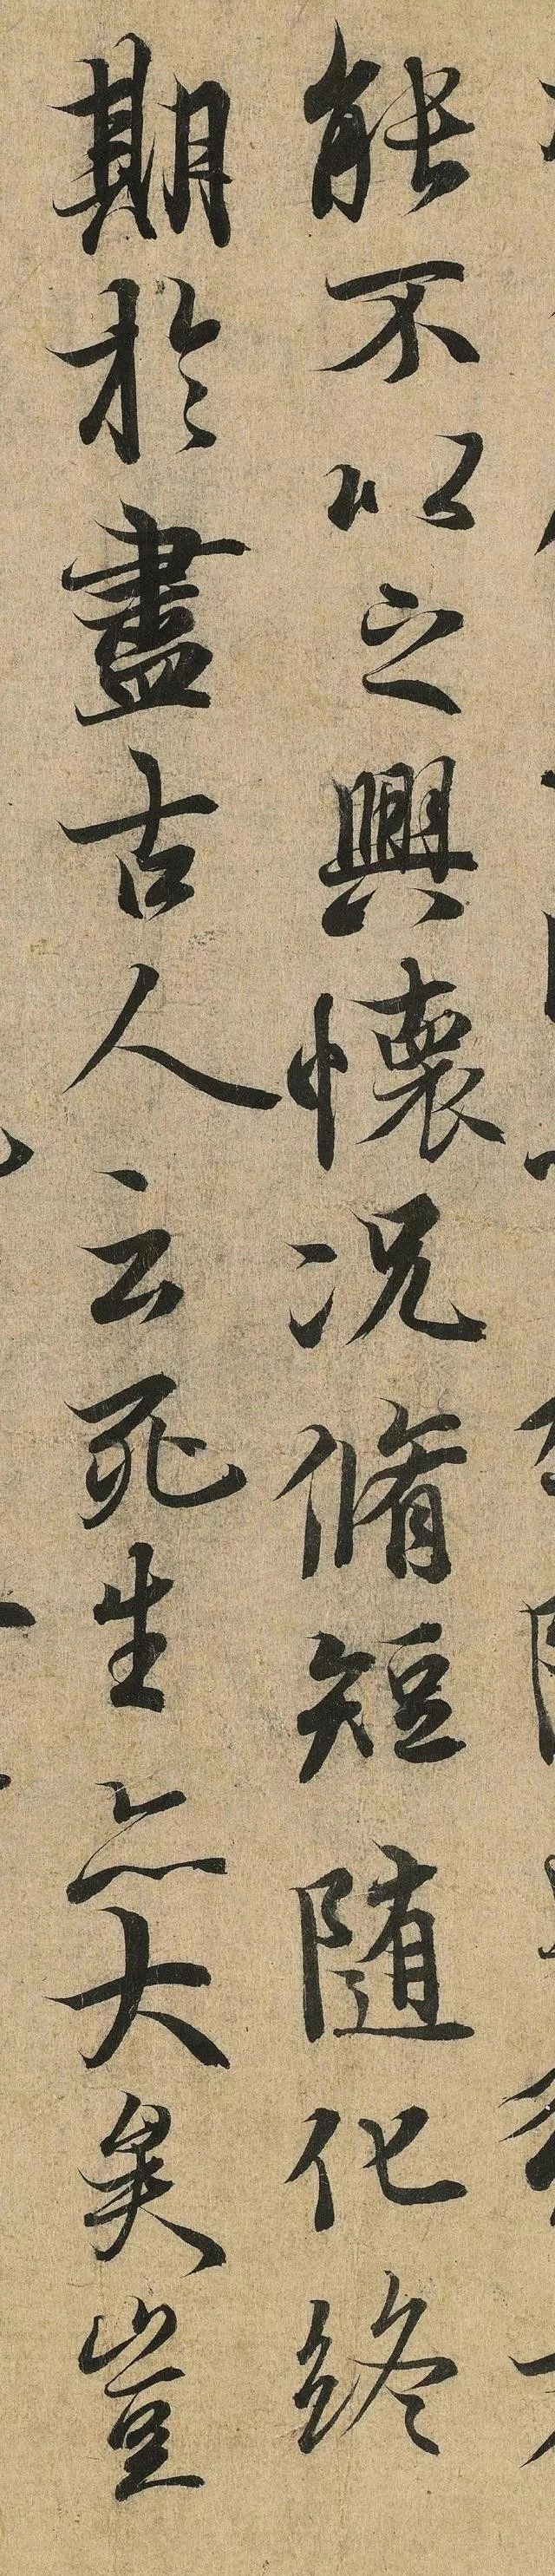 能不以之興懷況脩短随化終
期於盡古人云死生亦大矣豈